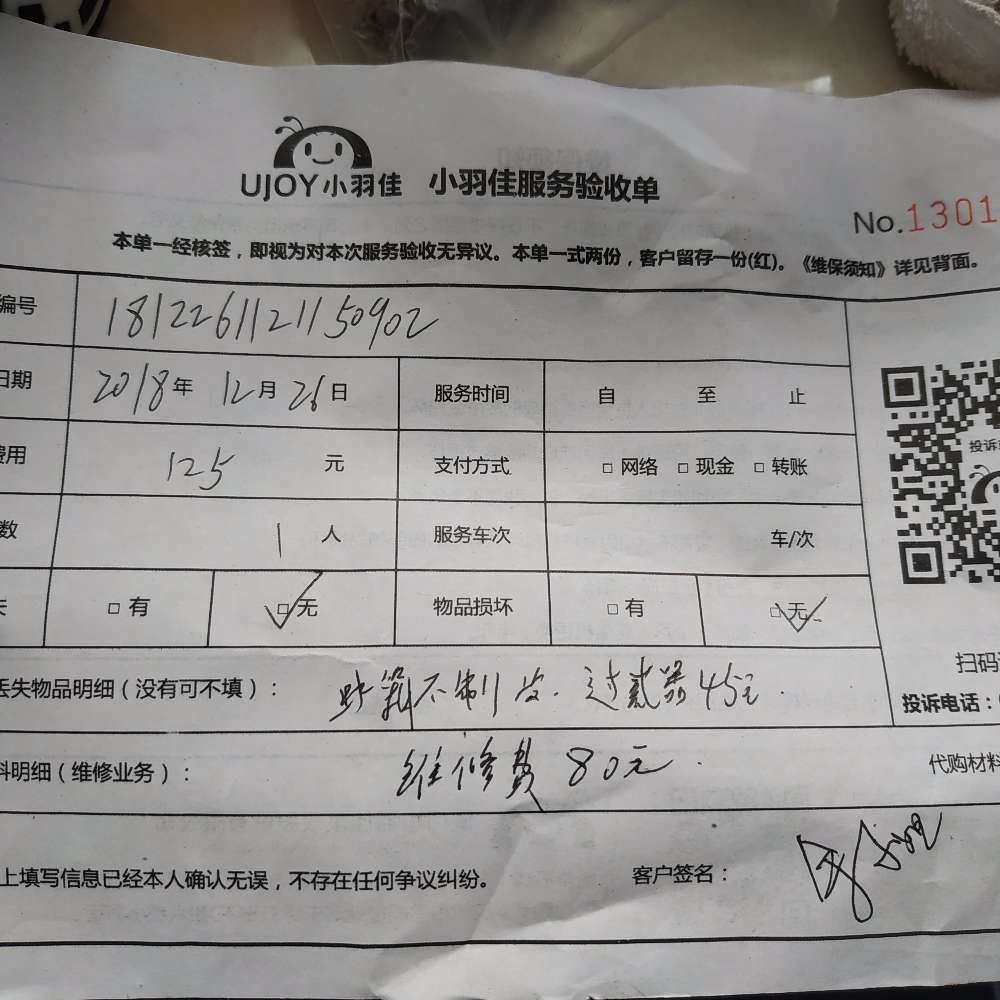 UJOY小羽佳 小羽佳服务验收单
No.1301
本单一经核签，即视为对本次服务验收无异议。本单一式两份，客户留存一份(红)。《维保须知》详见背面。
编号 1812261121150902
日期 2018年 12月 26日 服务时间 自 至 止
费用 125 元 支付方式 □ 网络 □ 现金 □ 转账
数 1 人 服务车次 车/次
□ 有 □ 无 物品损坏 □ 有 □ 无
投诉
扫码
丢失物品明细（没有可不填）： 不制 45元
投诉电话：
料明细（维修业务）： 维修费 80元. 代购材料
上填写信息已经本人确认无误，不存在任何争议纠纷。 客户签名：